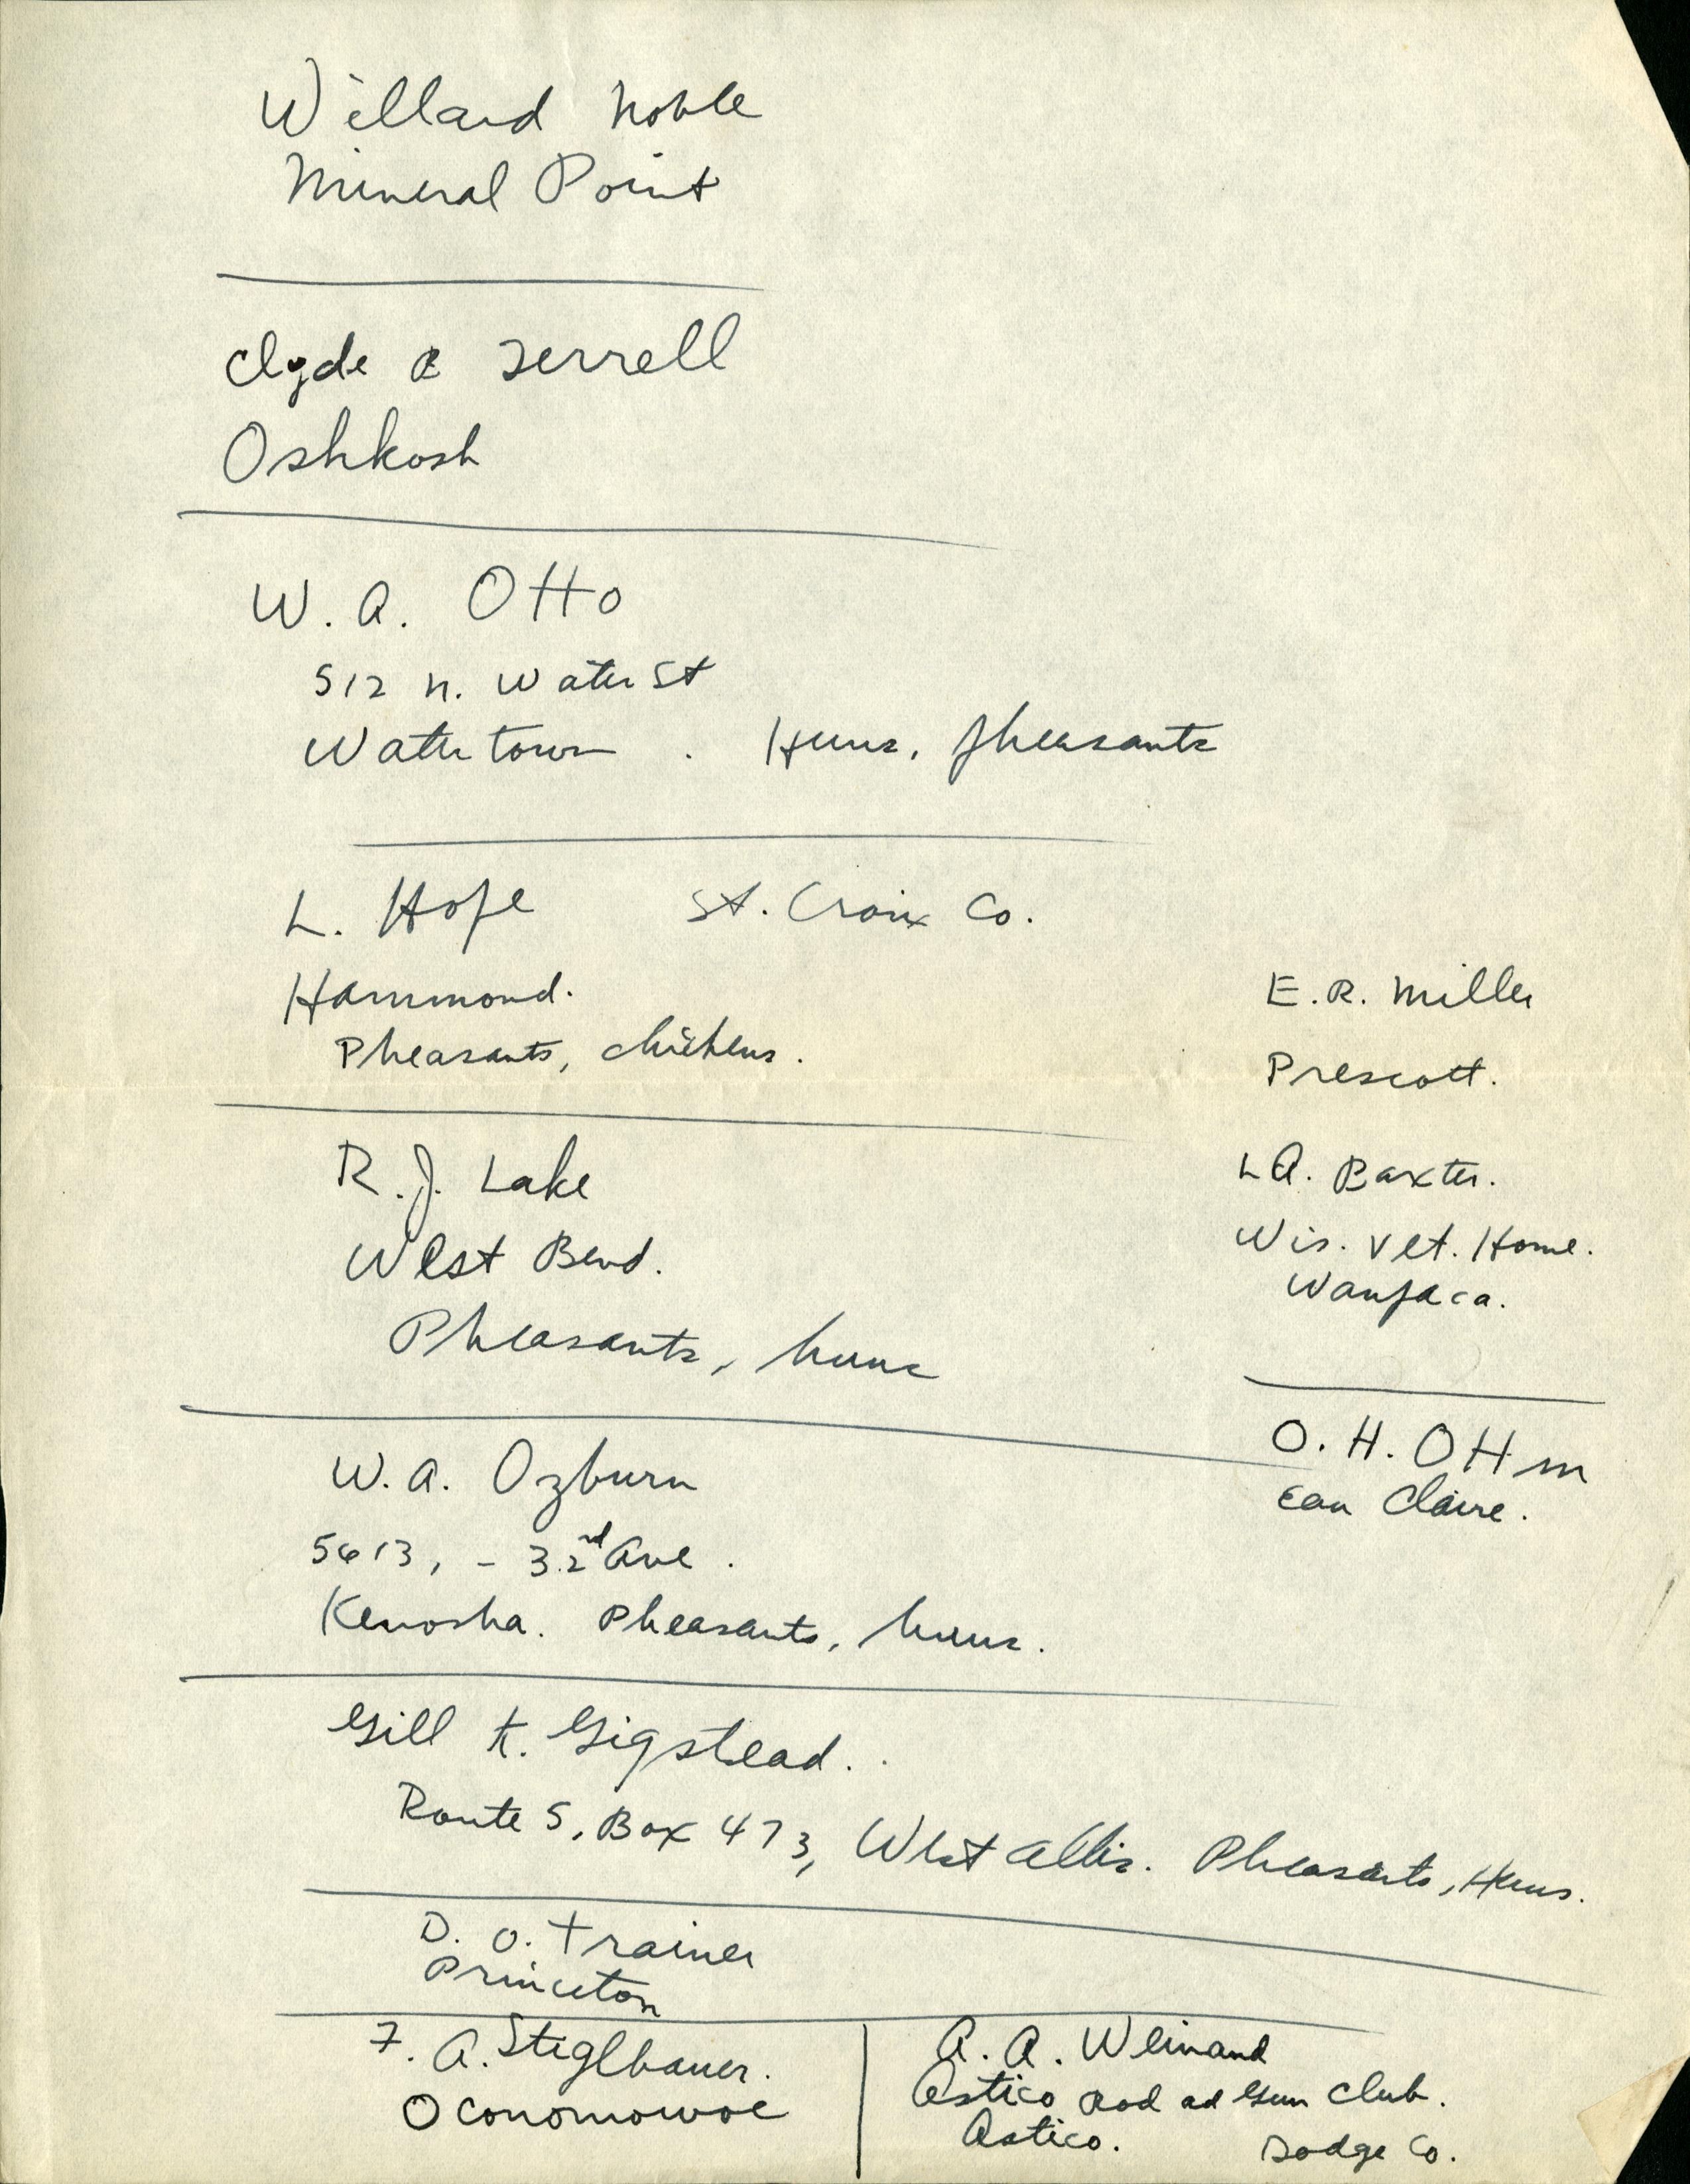 Willard Noble
Mineral Point
Clyde B Terrell
Oshkosh
W. A. Otto
512 N. Water St
Watertown . Huns, pheasants
L. Hope St. Croix Co.
Hammond.
Pheasants, chickens.
R. J. Lake
West Bend.
Pheasants, huns
W. A. Ozburn
5613, - 32nd Ave.
Kenosha. Pheasants, huns.
Gill K. Gigstead.
Route 5, Box 473, West Allis. Pheasants, Huns.
D. O. Trainer
Princeton
F. A. Steglbauer.
Oconomowoc
A. A. Weinand
Astico Rod ad Gun Club.
Astico. Dodge Co.
E.R. Miller
Prescott.
L A. Baxter.
Wis. Vet. Home.
Waupaca.
O. H. Ottm
Eau Claire.